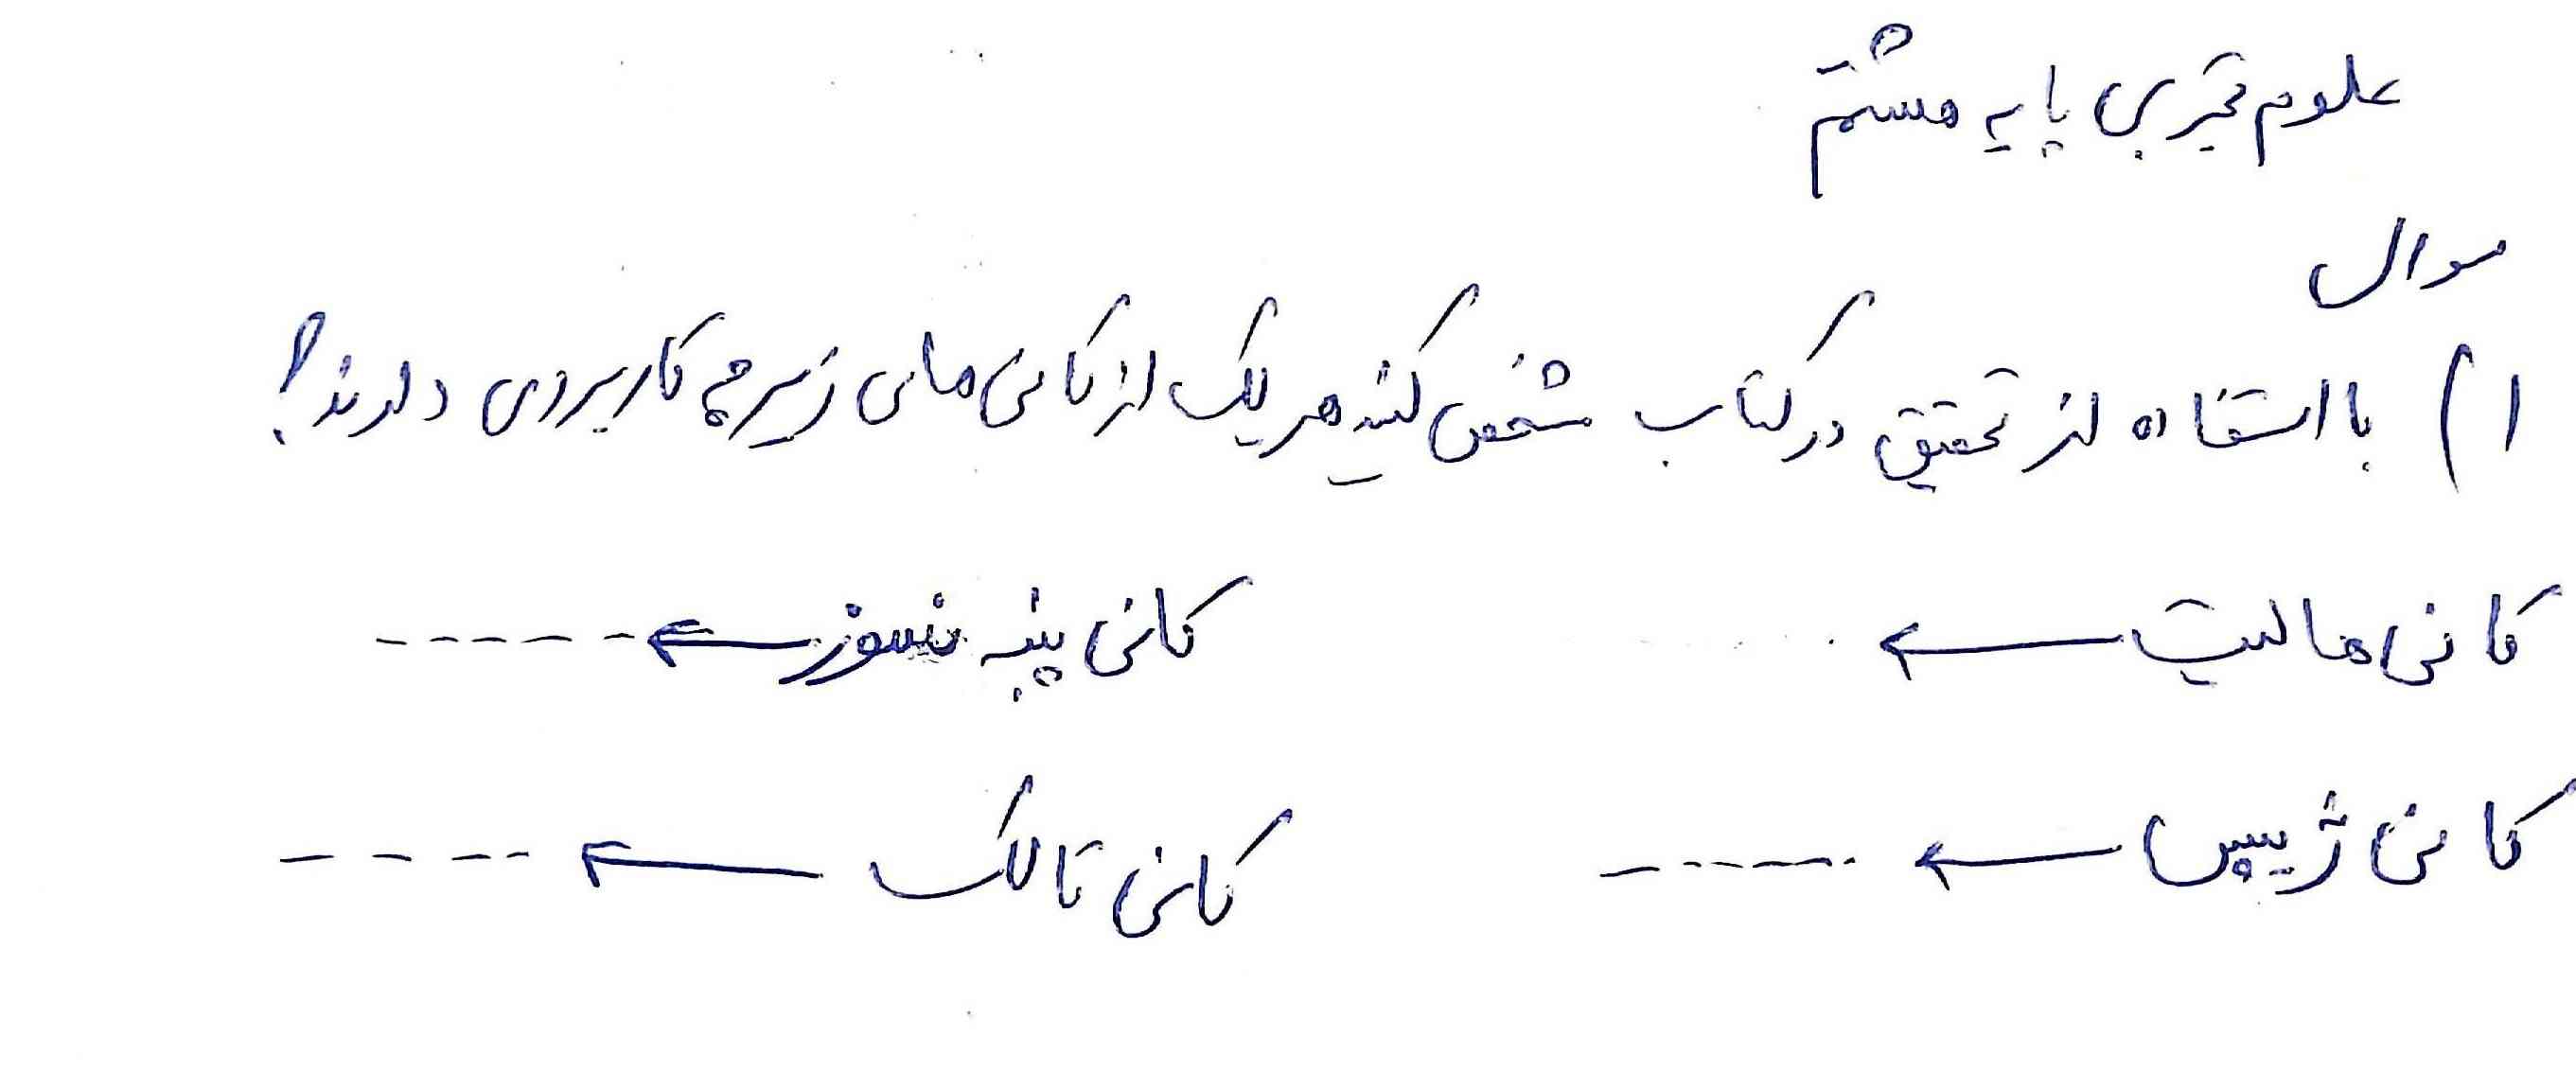 علوم تجربی پایه هشتم
سوال
۱) با استفاده از تحقیق در کتاب مشخص کنید هر یک از کانی های زیر چه کاربردی دارند؟
کانی هالیت ← کانی پنبه نسوز ← -----
کانی ژیپس ← ------ کانی تالک ← ----